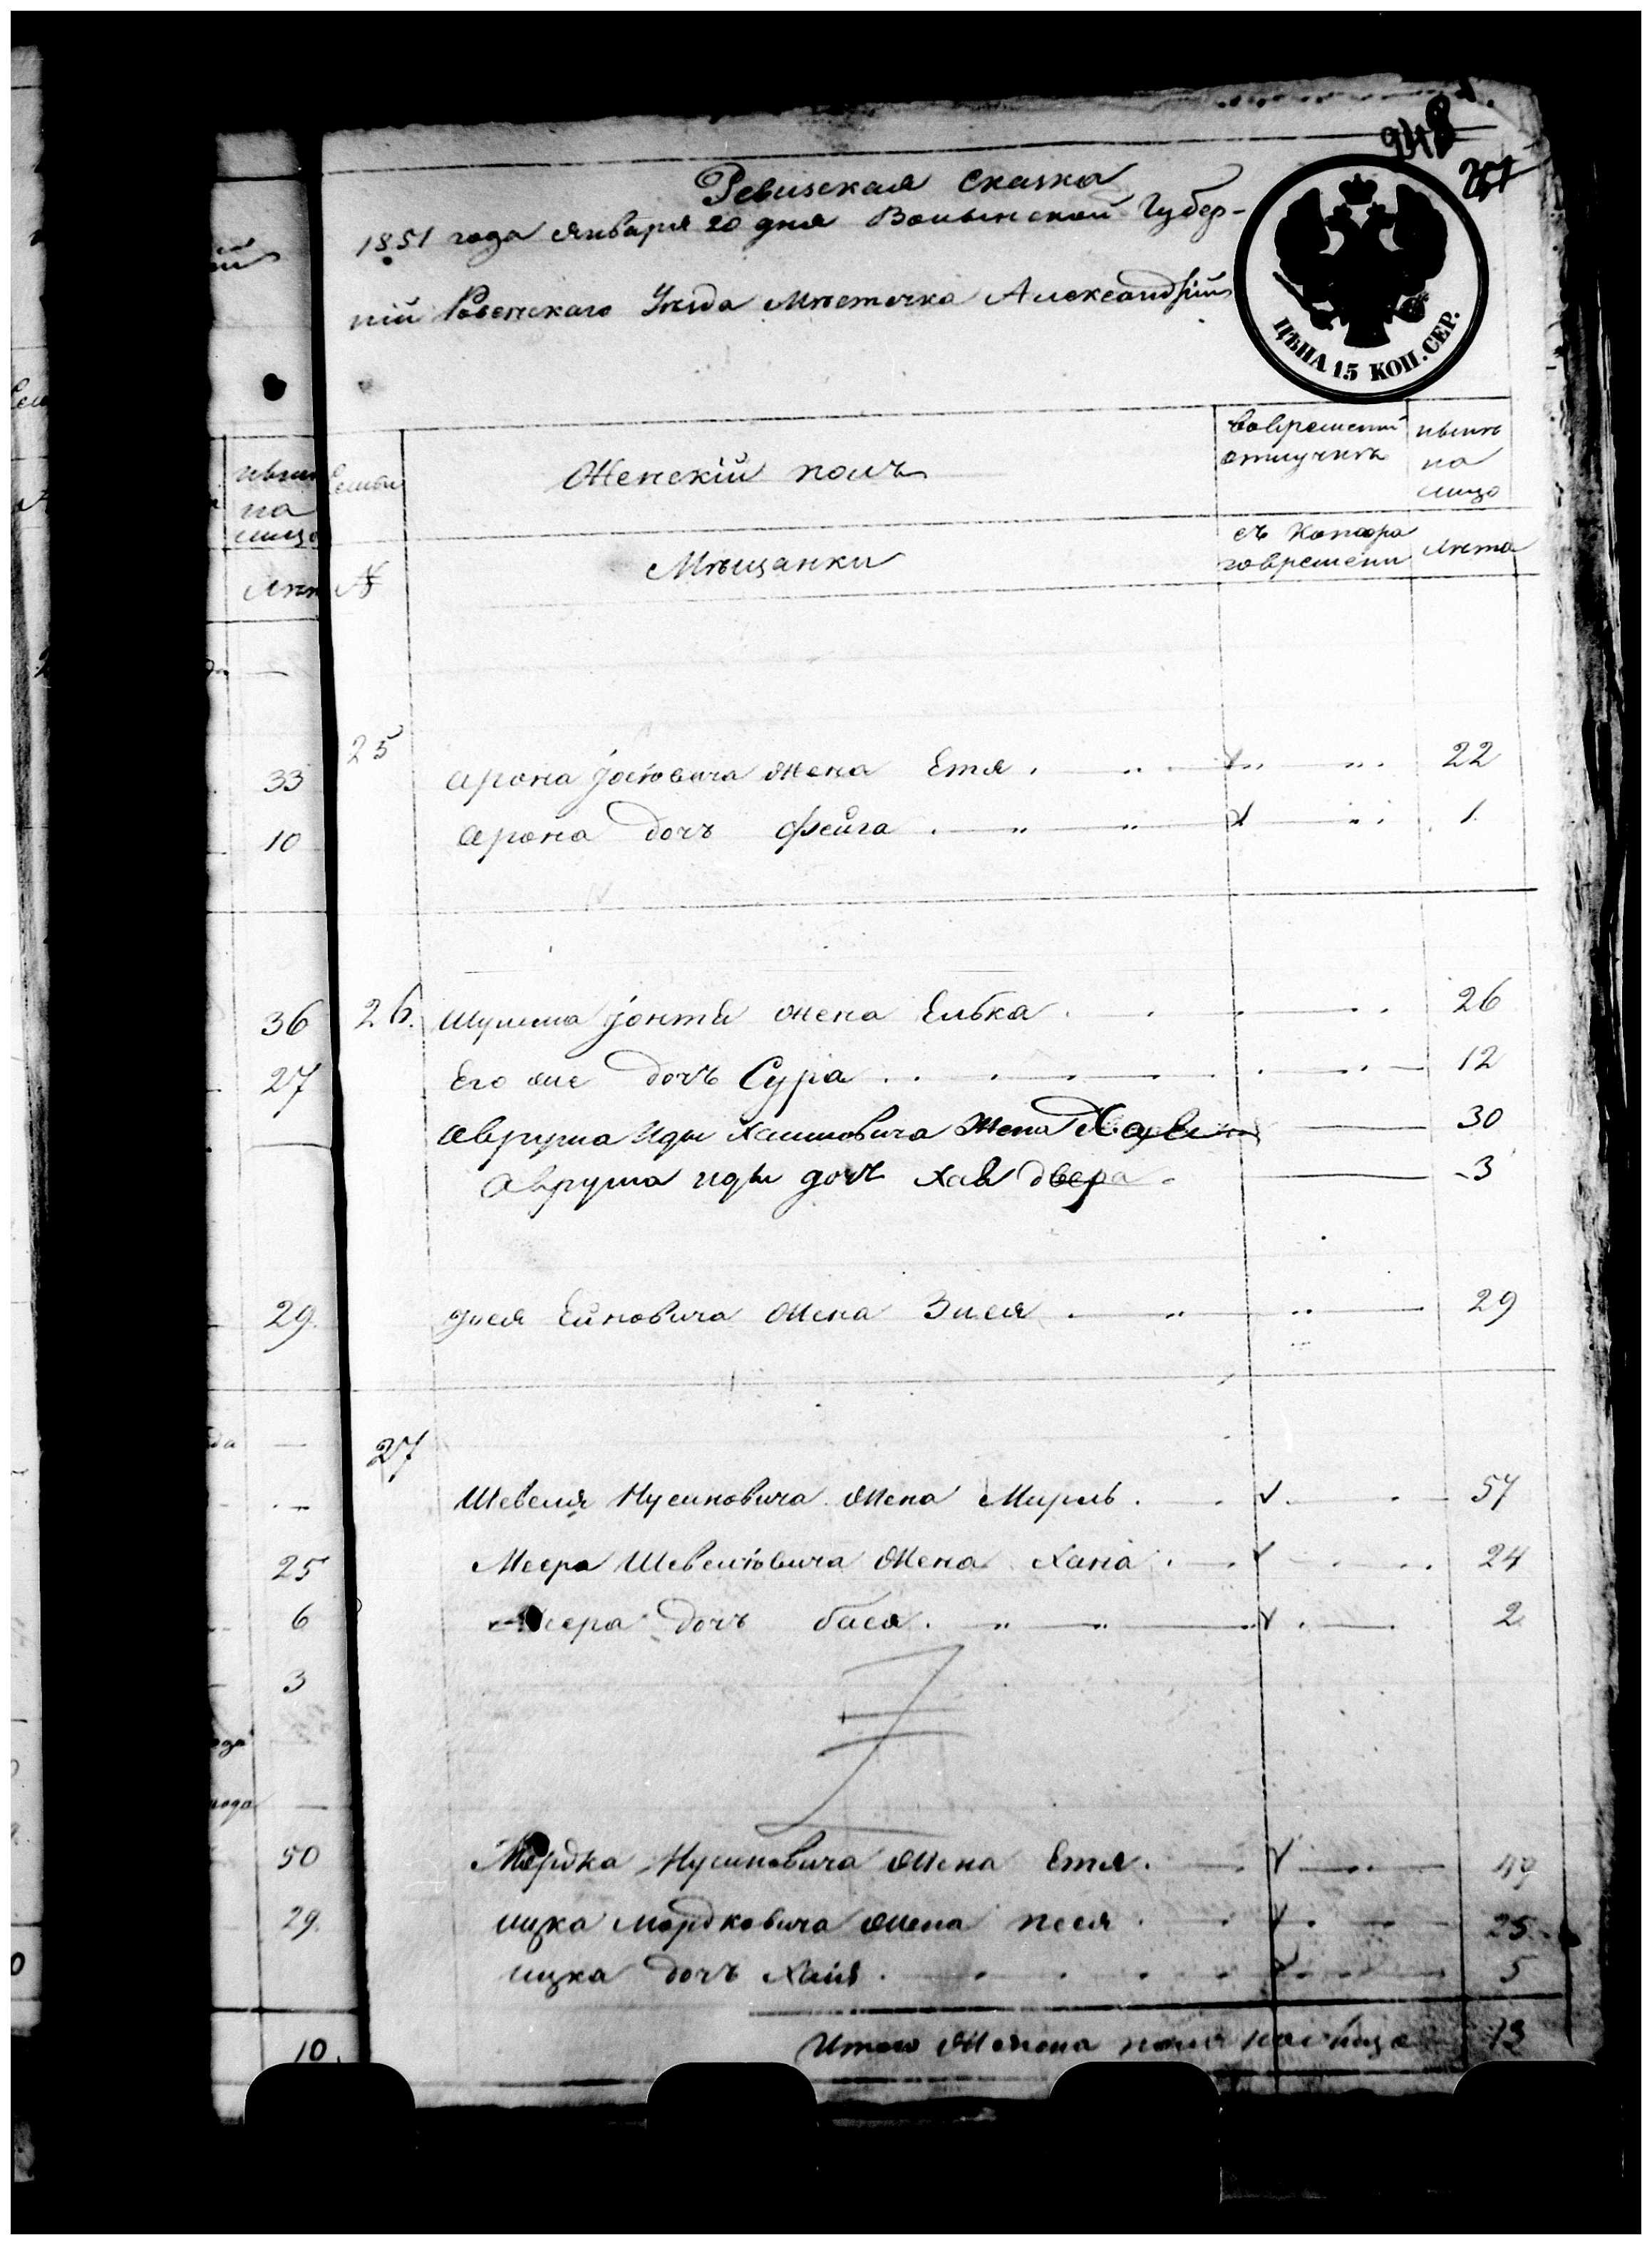 248
251
Ревизская Сказка
1851 года Января 20 дня Волынской Губер-
ніи Ровенскаго Уѣзда Мѣстечка Александріи
ЦѢНА 15 КОП. СЕР.
Семьи
Женскій полъ
вовременной отлучкѣ
нынѣ на лицо
№
Мѣщанки
съ Котора
говремени
лѣта
нын
на
лицо
Лѣт
25
33
Арона Іосіовича жена Етя 22
10
Арона дочь Фейга 1
36
26. Шулима Іонтѣ жена Елька 26
27
Его же дочь Сура 12
Аврума Иды Хаимовича жена 30
Аврума иды дочь Хая двера 3
29.
Іося Ейновича жена Зися 29
27
Шевеля Нусиновича жена Мирль 57
25
Меера Шевеліовича жена Хана 24
6
Меера дочь бася 2
3
года
50
Мордка Нусиновича жена Етя 49
29.
ицка Мордковича жена песя 25
ицка дочь Хаия 5
10.
Итого Женска пола на лицо 13